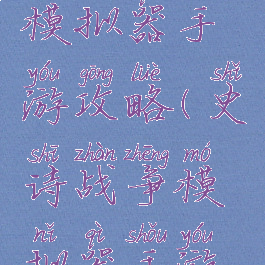 模拟器手
yóu gōng lüè shǐ
游攻略(史
shī zhàn zhēng mó
诗战争模
nǐ qì shǒu yóu
拟器手游